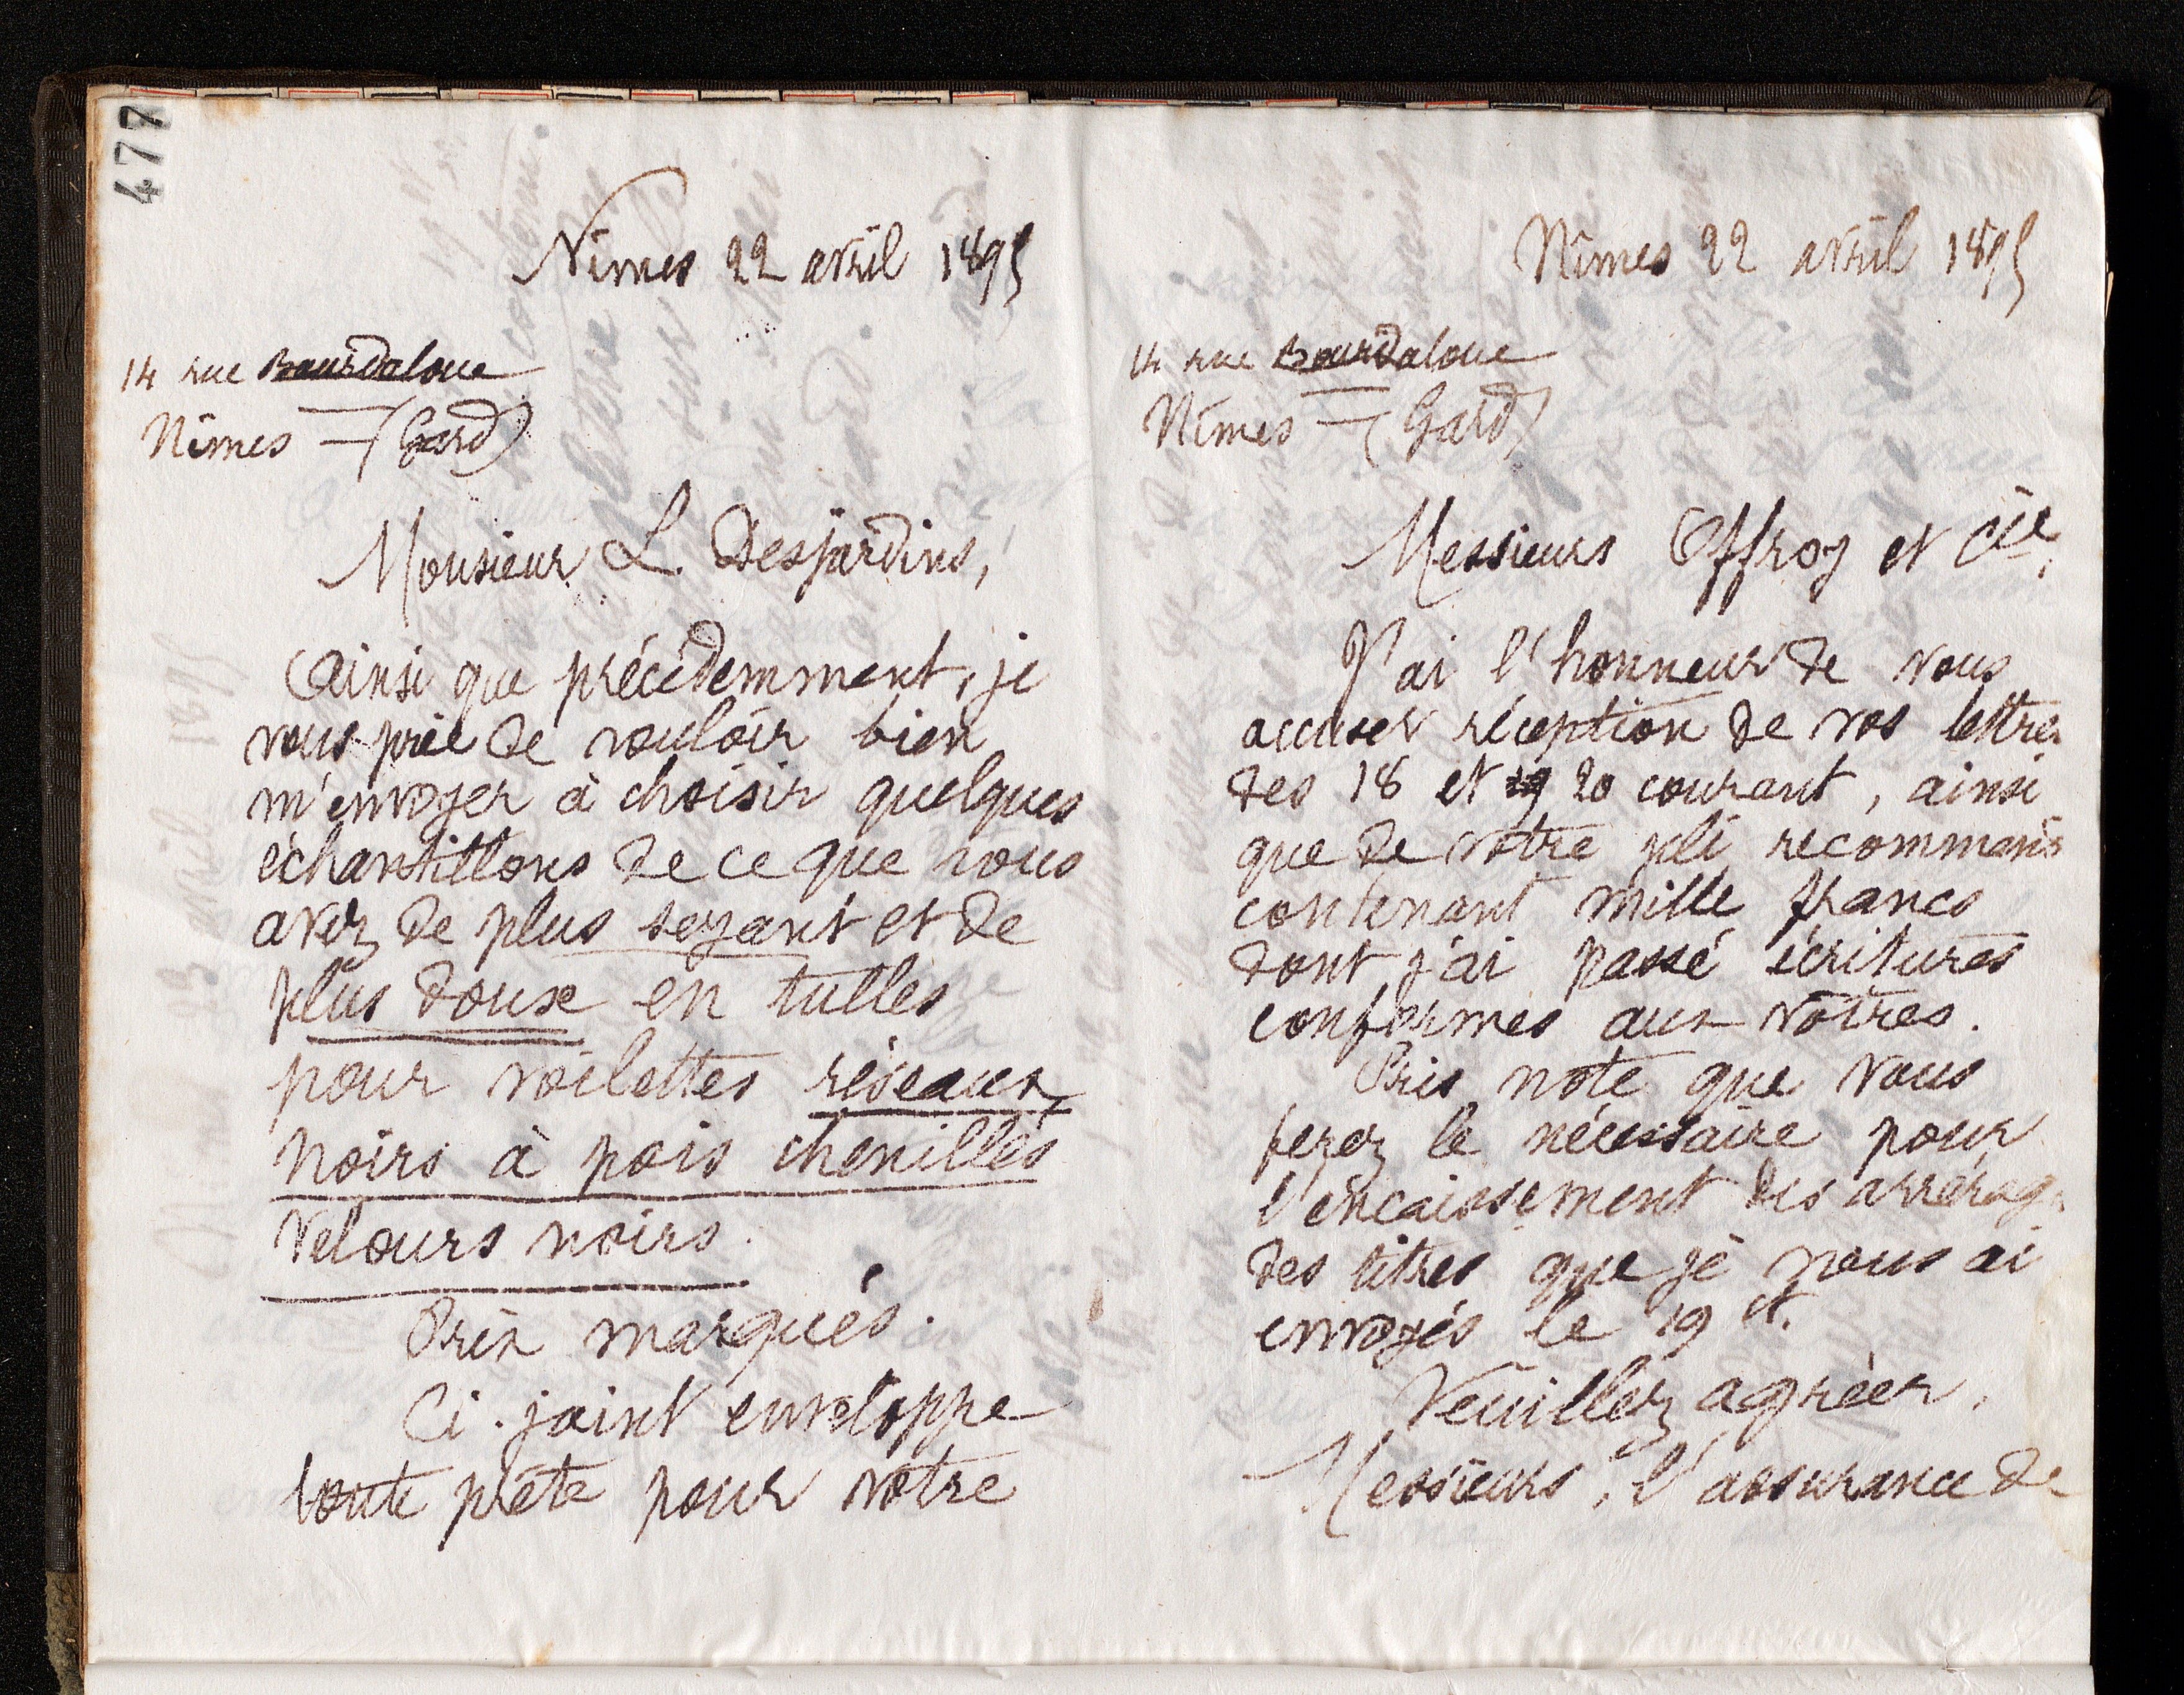 477
Nîmes 22 avril 1895
14 rue Bourdaloue
Nîmes — (Gard)
Monsieur L. Desjardins,
Ainsi que précédemment, je
vous prie de vouloir bien
m'envoyer à choisir quelques
échantillons de ce que vous
avez de plus seyant et de
plus doux en tulles
pour voilettes réseaux
noirs à pois chenillés
velours noirs.
Prix marqués.
Ci-joint enveloppe
toute prête pour votre
Nîmes 22 avril 1895
14 rue Bourdaloue
Nîmes — (Gard)
Messieurs Offroy et Cie,
J'ai l'honneur de vous
accuser réception de vos lettres
des 18 et 19 20 courant, ainsi
que de votre pli recommandé
contenant mille francs
dont j'ai passé écritures
conformes aux vôtres.
Pris note que vous
ferez le nécessaire pour
l'encaissement des arrérag
des titres que je vous ai
envoyés le 19 ct.
Veuillez agréer,
Messieurs, l'assurance de